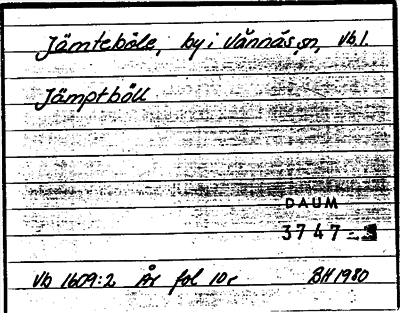 Jämteböle, by i Vännäs sn, Vb.l.
Jämptböll
DAUM
3747
Vb 1609:2 År fol 10r BH 1980